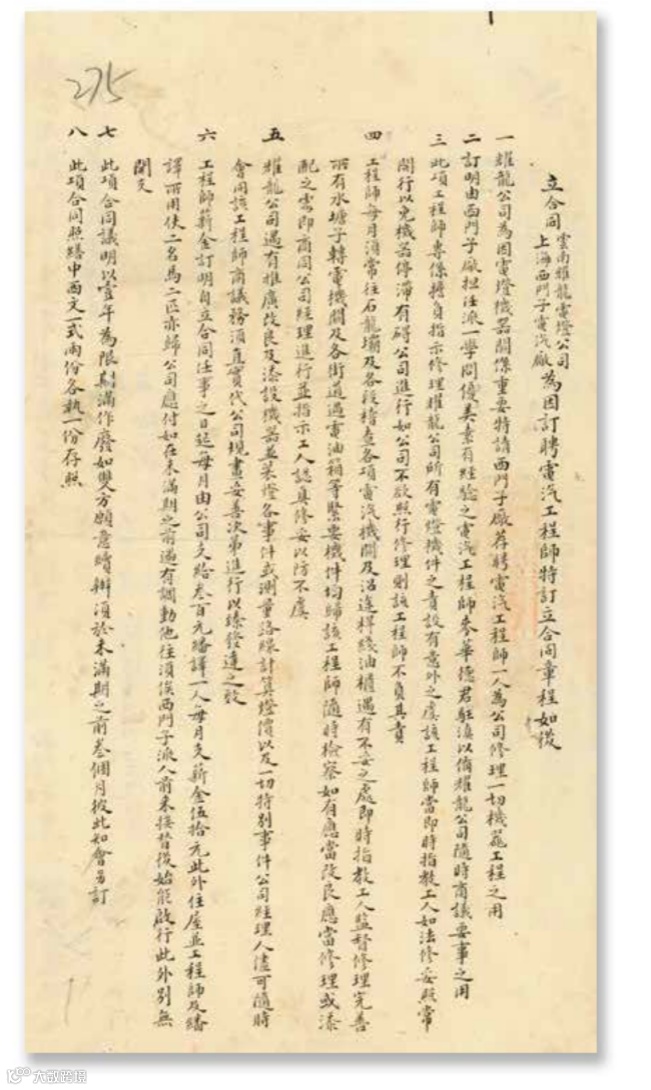 275
立合同雲南耀龍電燈公司上海西門子電汽廠為因訂聘電汽工程師特訂立合同章程如後
一 耀龍公司為因電燈機器關係重要特請西門子廠荐聘電汽工程師一人為公司修理一切機器工程之用
二 訂明由西門子廠担任派一學問優美素有經驗之電汽工程師麥華德君駐滇以備耀龍公司隨時商議要事之用
三 此項工程師專係擔負指示修理耀龍公司所有電燈機件之責設有意外之虞該工程師當即時指教工人如法修妥照常
開行以免機器停滯有碍公司進行如公司不欲照行修理則該工程師不負其責
四 工程師每月須常往石龍壩及各段稽查各項電汽機關及沿途桿綫油櫃遇有不妥之處即時指教工人監督修理完善
所有水塘子轉電機關及各街道過電油箱等緊要機件均歸該工程師隨時檢察如有應當改良應當修理或添
配之處即商同公司經理進行並指示工人認真修妥以防不虞
五 耀龍公司遇有推廣改良及添設機器並裝燈各事件或測量路線計算燈價以及一切特別事件公司經理人儘可隨時
會同該工程師商議務須真實代公司規畫妥善決第進行以臻發達之效
六 工程師薪金訂明自立合同任事之日起每月由公司支給叁百元繙譯一人每月支薪金伍拾元此外住屋並工程師及繙
譯所用伕二名馬二匹亦歸公司應付如在未滿期之前遇有調動他往須俟西門子派人前來接替後始能啟行此外別無
開支
七 此項合同議明以壹年為限期滿作廢如雙方願意續辦須於未滿期之前叁個月彼此知會另訂
八 此項合同照繕中西文一式兩份各執一份存照
大數跨境